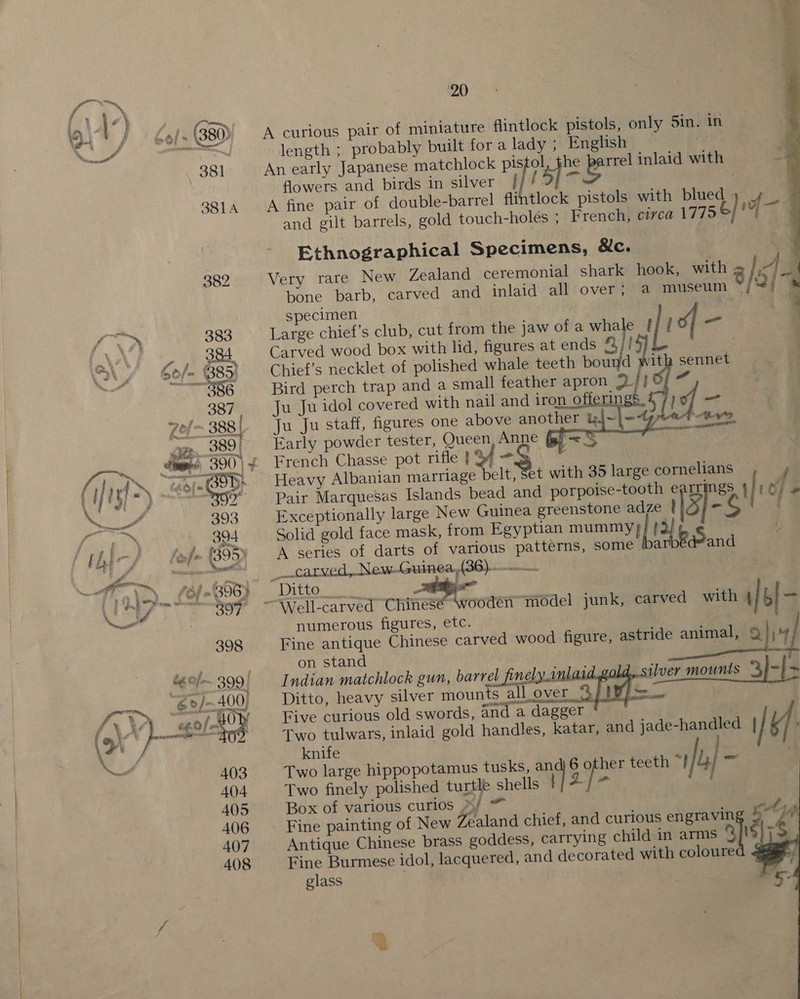 20
60/- 380 A curious pair of miniature flintlock pistols, only 5in. in
length ; probably built for a lady ; English
381 An early Japanese matchlock pistol, the barrel inlaid with
flowers and birds in silver
381A A fine pair of double-barrel flintlock pistols with blued
and gilt barrels, gold touch-holes ; French, circa 1775
Ethnographical Specimens, &c.
382 Very rare New Zealand ceremonial shark hook, with
bone barb, carved and inlaid all over ; a museum
specimen
383 Large chief's club, cut from the jaw of a whale
384 Carved wood box with lid, figures at ends
60/- 385 Chief's necklet of polished whale teeth bound with sennet
386 Bird perch trap and a small feather apron
387 Ju Ju idol covered with nail and iron offerings
70/- 388 Ju Ju staff, figures one above another
389 Early powder tester, Queen Anne
390 French Chasse pot rifle
391 Heavy Albanian marriage belt, set with 35 large cornelians
392 Pair Marquesas Islands bead and porpoise-tooth earrings
393 Exceptionally large New Guinea greenstone adze
394 Solid gold face mask, from Egyptian mummy
395 A series of darts of various patterns, some barbed and
carved, New Guinea, (36)
396 Ditto
397 Well-carved Chinese wooden model junk, carved with
numerous figures, etc.
398 Fine antique Chinese carved wood figure, astride animal,
on stand
399 Indian matchlock gun, barrel finely inlaid gold, silver mounts
60/- 400 Ditto, heavy silver mounts all over
401 Five curious old swords, and a dagger
402 Two tulwars, inlaid gold handles, katar, and jade-handled
knife
403 Two large hippopotamus tusks, and 6 other teeth
404 Two finely polished turtle shells
405 Box of various curios
406 Fine painting of New Zealand chief, and curious engraving
407 Antique Chinese brass goddess, carrying child in arms
408 Fine Burmese idol, lacquered, and decorated with coloured
glass